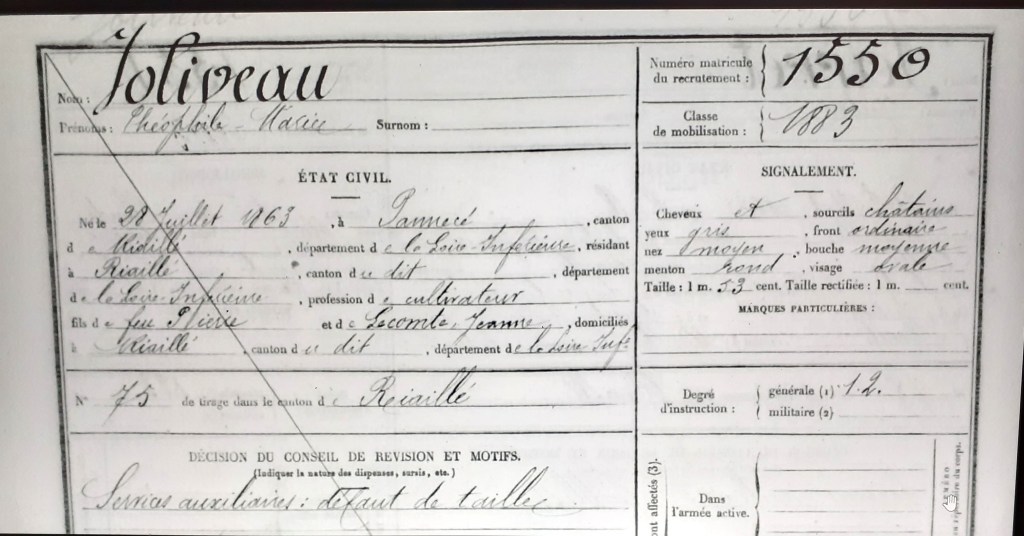 Joliveau
Nom :
Prénoms : Théophile - Marie Surnom :
ÉTAT CIVIL.
Né le 28 Juillet 1863, à Pannecé, canton
de Riaillé, département de la Loire-Inférieure, résidant
à Riaillé, canton du dit, département
de la Loire-Inférieure, profession de cultivateur
fils de feu Pierre et de Lecomte, Jeanne, domiciliés
à Riaillé, canton du dit, département de la Loire-Infre
N° 75 de tirage dans le canton de Riaillé
DÉCISION DU CONSEIL DE REVISION ET MOTIFS.
(Indiquer la nature des dispenses, sursis, etc.)
Services auxiliaires : défaut de taille
Numéro matricule
du recrutement : 1550
Classe
de mobilisation : 1883
SIGNALEMENT.
Cheveux et, sourcils châtains
yeux gris, front ordinaire
nez moyen, bouche moyenne
menton rond, visage ovale
Taille : 1 m. 53 cent. Taille rectifiée : 1 m. cent.
MARQUES PARTICULIÈRES :
Degré
d'instruction :
générale (1) 1.2.
militaire (2)
nt affectés (3).
Dans
l'armée active.
NUMÉRO
répertoire du corps.